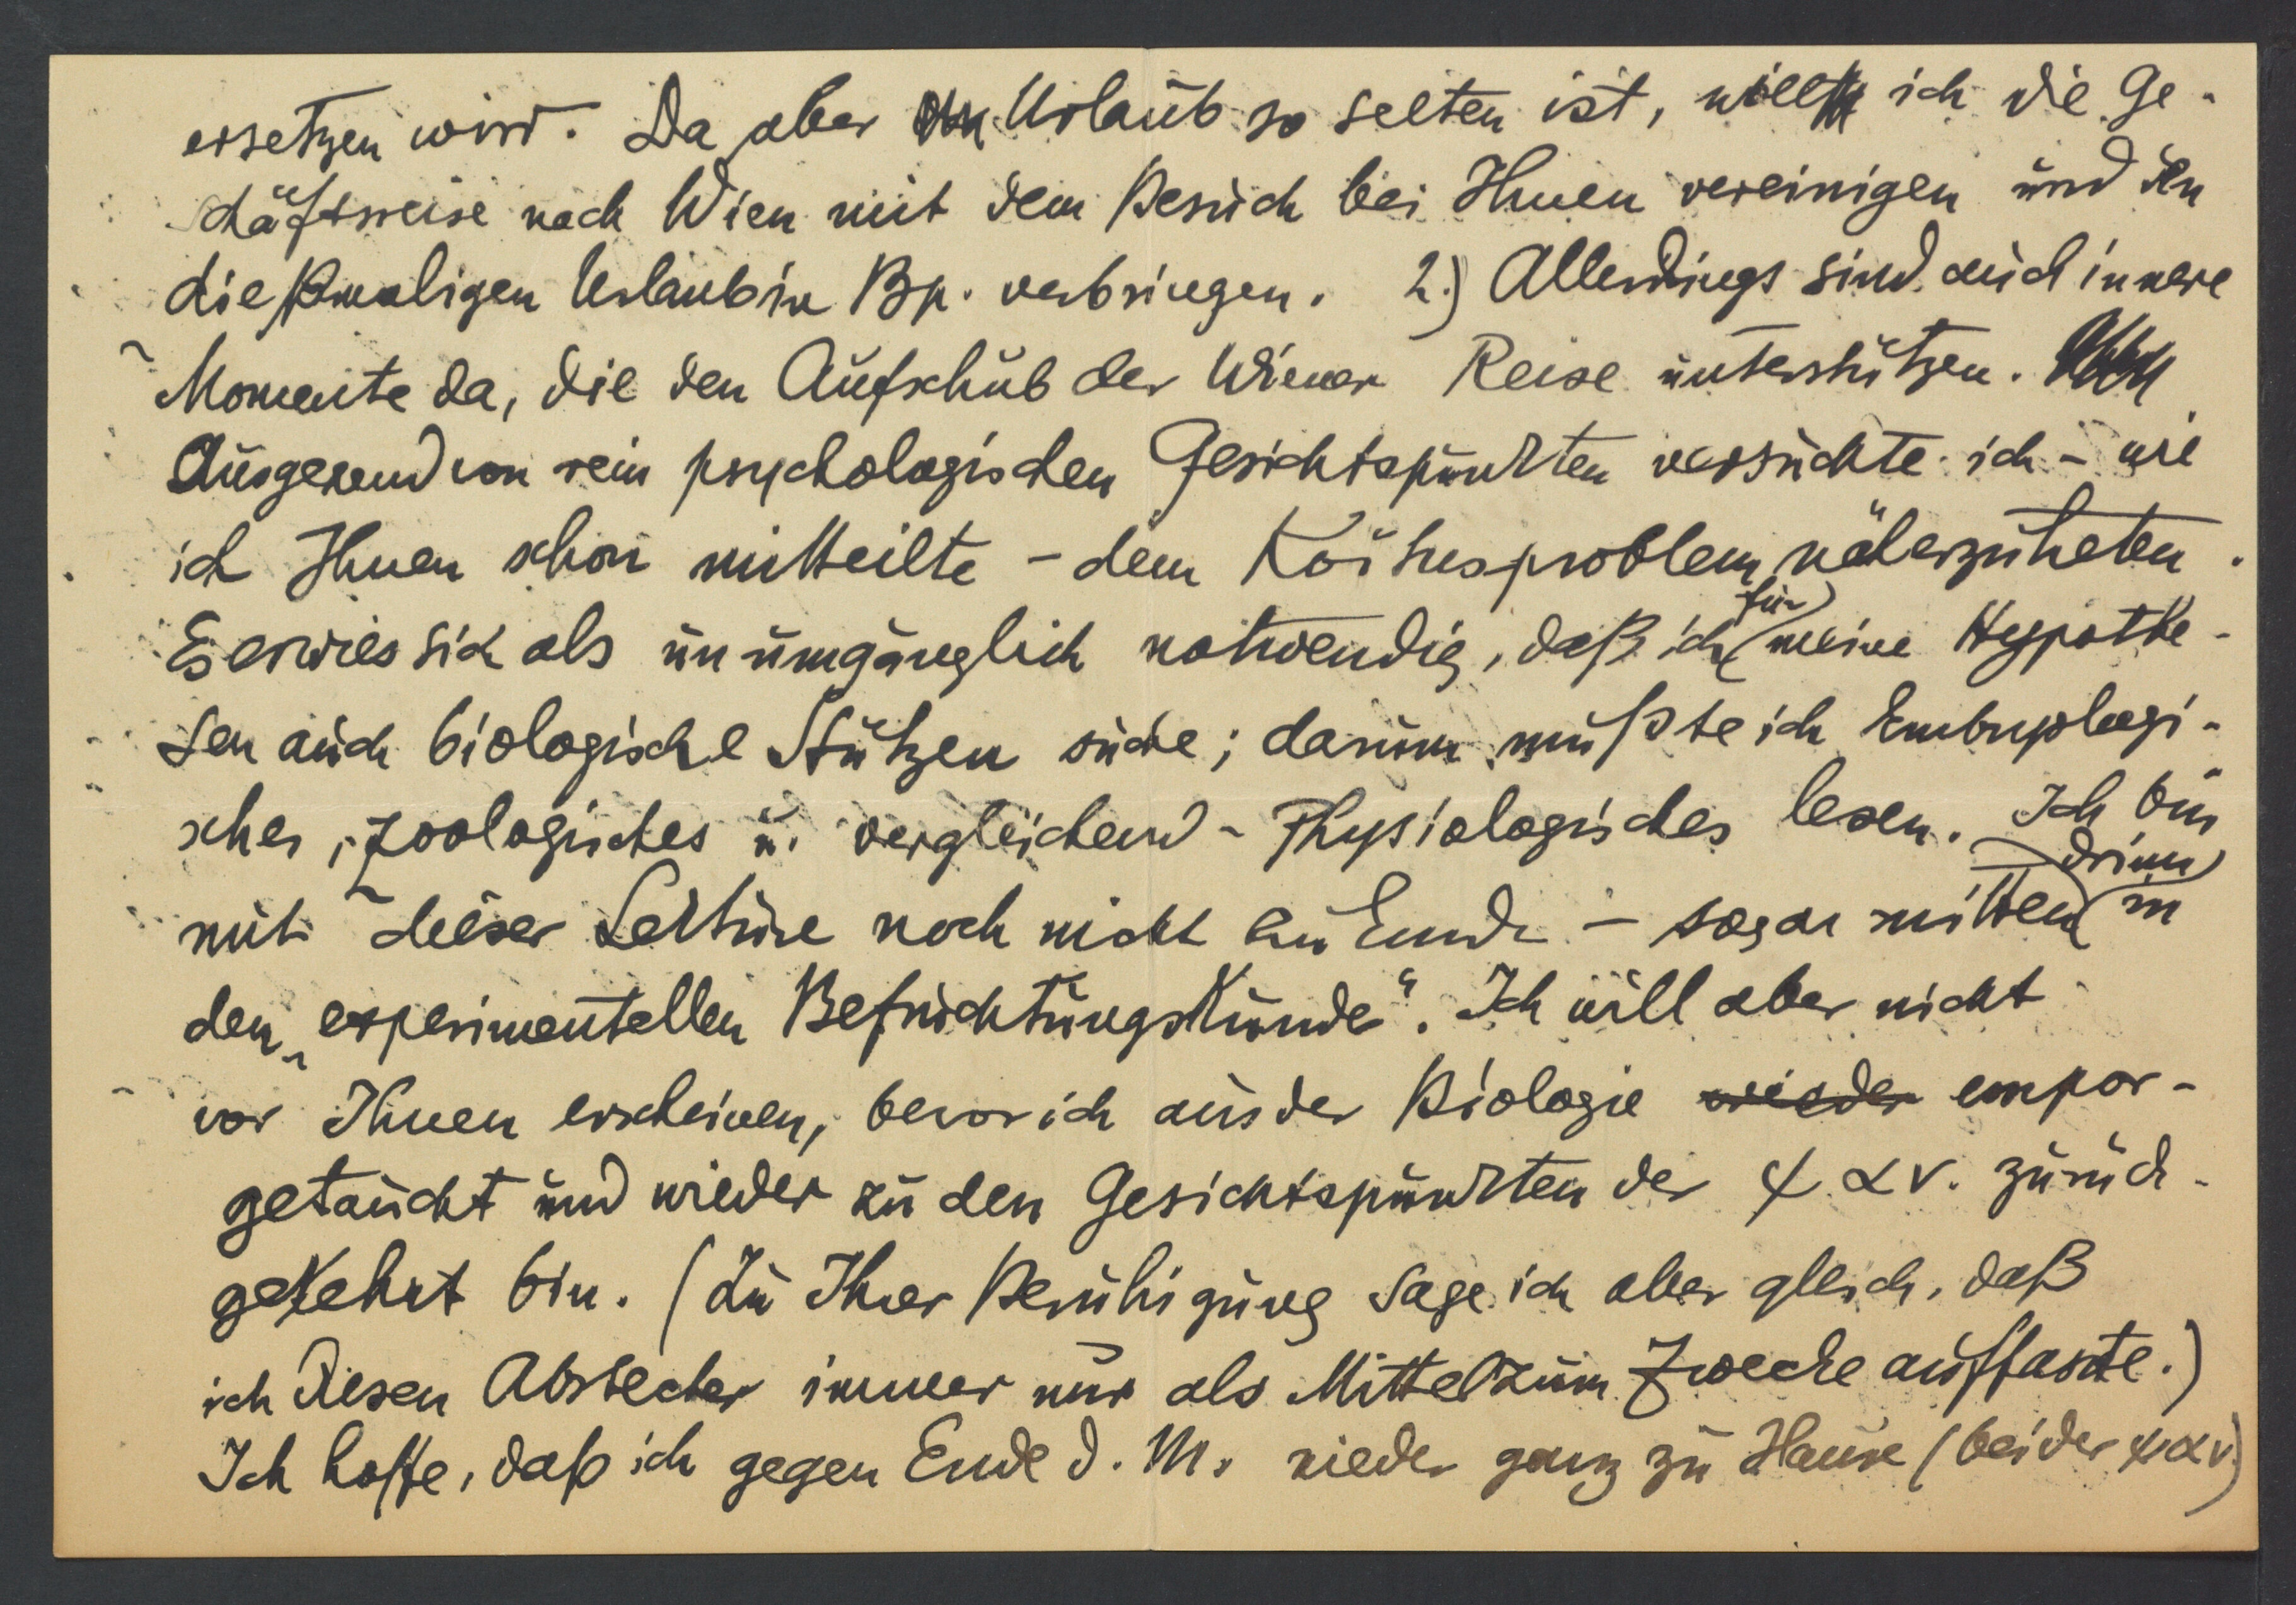 ersetzen wird. Da aber Urlaub so selten ist, will ich die Ge-
schäftsreise nach Wien mit dem Besuch bei Ihnen vereinigen und den
dießmaligen Urlaub in Bp. verbringen. 2.) Allerdings sind auch innere
Momente da, die den Aufschub der Wiener Reise unterstützen.
Ausgehend von rein psychologischen Gesichtspunkten versuchte ich – wie
ich Ihnen schon mitteilte – dem Koitusproblem näherzutreten.
Es erwies sich als unumgänglich notwendig, daß ich für meine Hypothe-
sen auch biologische Stützen suche; darum mußte ich Embryologi-
sches, Zoologisches u. vergleichend-Physiologisches lesen. Ich bin
mit dieser Lektüre noch nicht zu Ende – sogar mitten drinn in
den „experimentellen Befruchtungskunde“. Ich will aber nicht
vor Ihnen erscheinen, bevor ich aus der Biologie wieder empor-
getaucht und wieder zu den Gesichtspunkten der ψαν. zurück-
gekehrt bin. (Zu Ihrer Beruhigung sage ich aber gleich, daß
ich diesen Abstecher immer nur als Mittel zum Zwecke auffasste.)
Ich hoffe, daß ich gegen Ende d. M. wieder ganz zu Hause (bei der ψαν.)